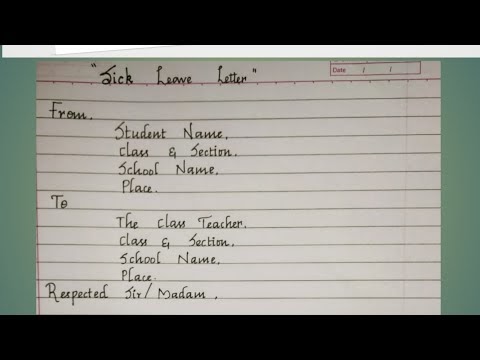 Date / /
"Sick Leave Letter"
From,
Student Name,
Class & Section,
School Name,
Place.
To
The Class Teacher,
Class & Section,
School Name,
Place.
Respected Sir/Madam,